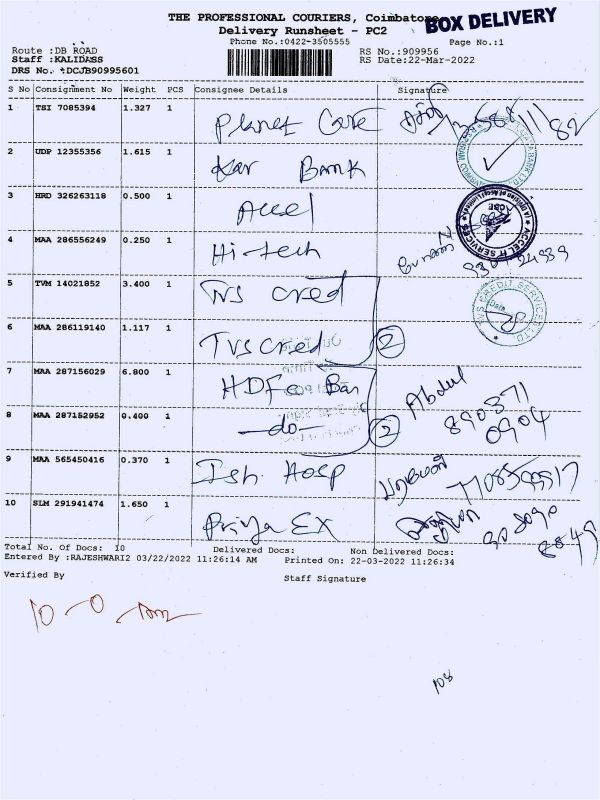 THE PROFESSIONAL COURIERS, Coimbatore
BOX DELIVERY
Delivery Runsheet - PC2
Phone No.:0422-3505555
Page No.:1
Route :DB ROAD
RS No.:909956
Staff :KALIDASS
RS Date:22-Mar-2022
DRS No. :DCJB90995601
S No Consignment No Weight PCS Consignee Details Signature
1 TSI 7085394 1.327 1 Planet Care
2 UDP 12355356 1.615 1 Kar BANK
3 HRD 326263118 0.500 1 Accel
ACCEL IT SERVICES
4 MAA 286556249 0.250 1 Hi-tech
5 TVM 14021852 3.400 1 TVS cred
TVS CREDIT SERVICES LTD.
6 MAA 286119140 1.117 1 TVS cred 2
7 MAA 287156029 6.800 1 HDFC Ban Abdul
8 MAA 287152952 0.400 1 -do- 2 890371
0904
9 MAA 565450416 0.370 1 Ish. Hosp
10 SLM 291941474 1.650 1 Priya EX
Total No. Of Docs: 10 Delivered Docs: Non Delivered Docs:
Entered By :RAJESHWARI2 03/22/2022 11:26:14 AM Printed On: 22-03-2022 11:26:34
Verified By Staff Signature
10 - 0